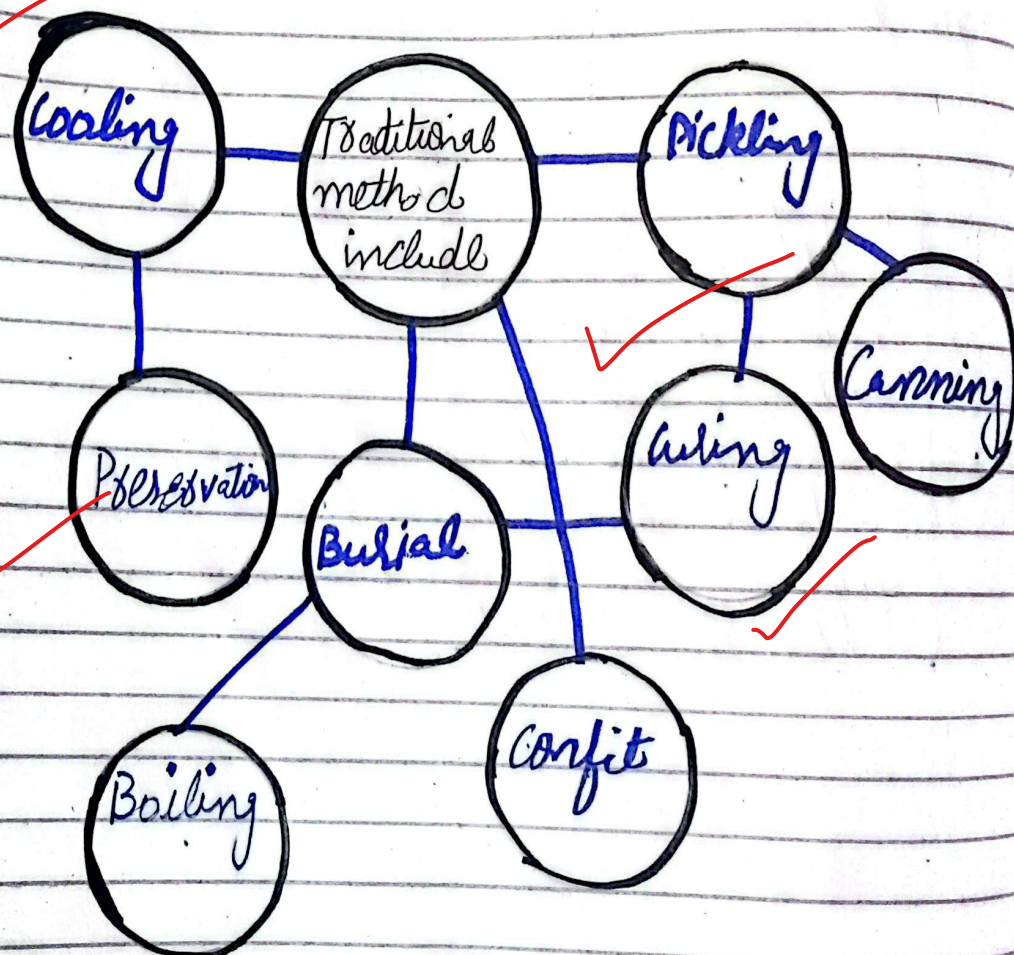 Cooling
Traditional
method
include
Pickling
Canning
Curing
Preservation
Burial
Confit
Boiling